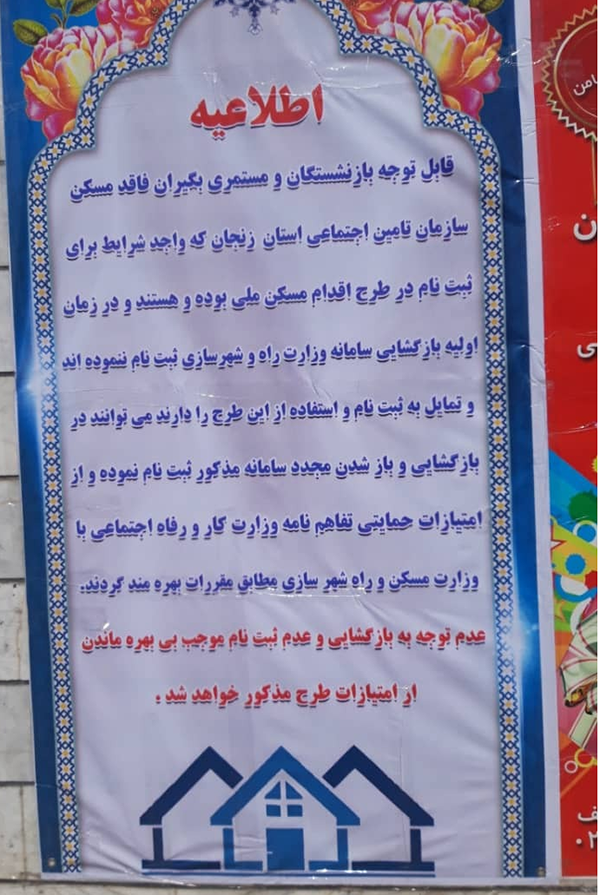 اطلاعیه
قابل توجه بازنشستگان و مستمری بگیران فاقد مسکن
سازمان تامین اجتماعی استان زنجان که واجد شرایط برای
ثبت نام در طرح اقدام مسکن ملی بوده و هستند و در زمان
اولیه بازگشایی سامانه وزارت راه و شهرسازی ثبت نام ننموده اند
و تمایل به ثبت نام و استفاده از این طرح را دارند می توانند در
بازگشایی و باز شدن مجدد سامانه مذکور ثبت نام نموده و از
امتیازات حمایتی تفاهم نامه وزارت کار و رفاه اجتماعی با
وزارت مسکن و راه شهر سازی مطابق مقررات بهره مند گردند.
عدم توجه به بازگشایی و عدم ثبت نام موجب بی بهره ماندن
از امتیازات طرح مذکور خواهد شد .